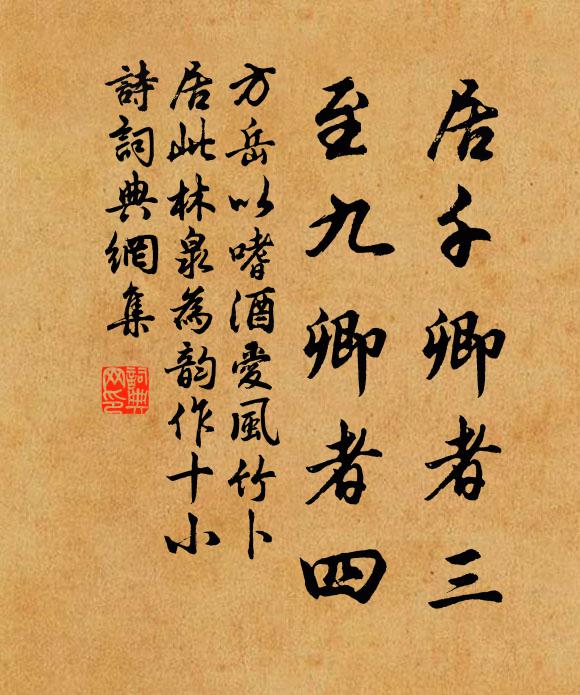 居千卿者三
至九卿者四
方岳以嗜酒愛風竹卜
居此林泉為韵作十小
詩詞典網集
詞典網印